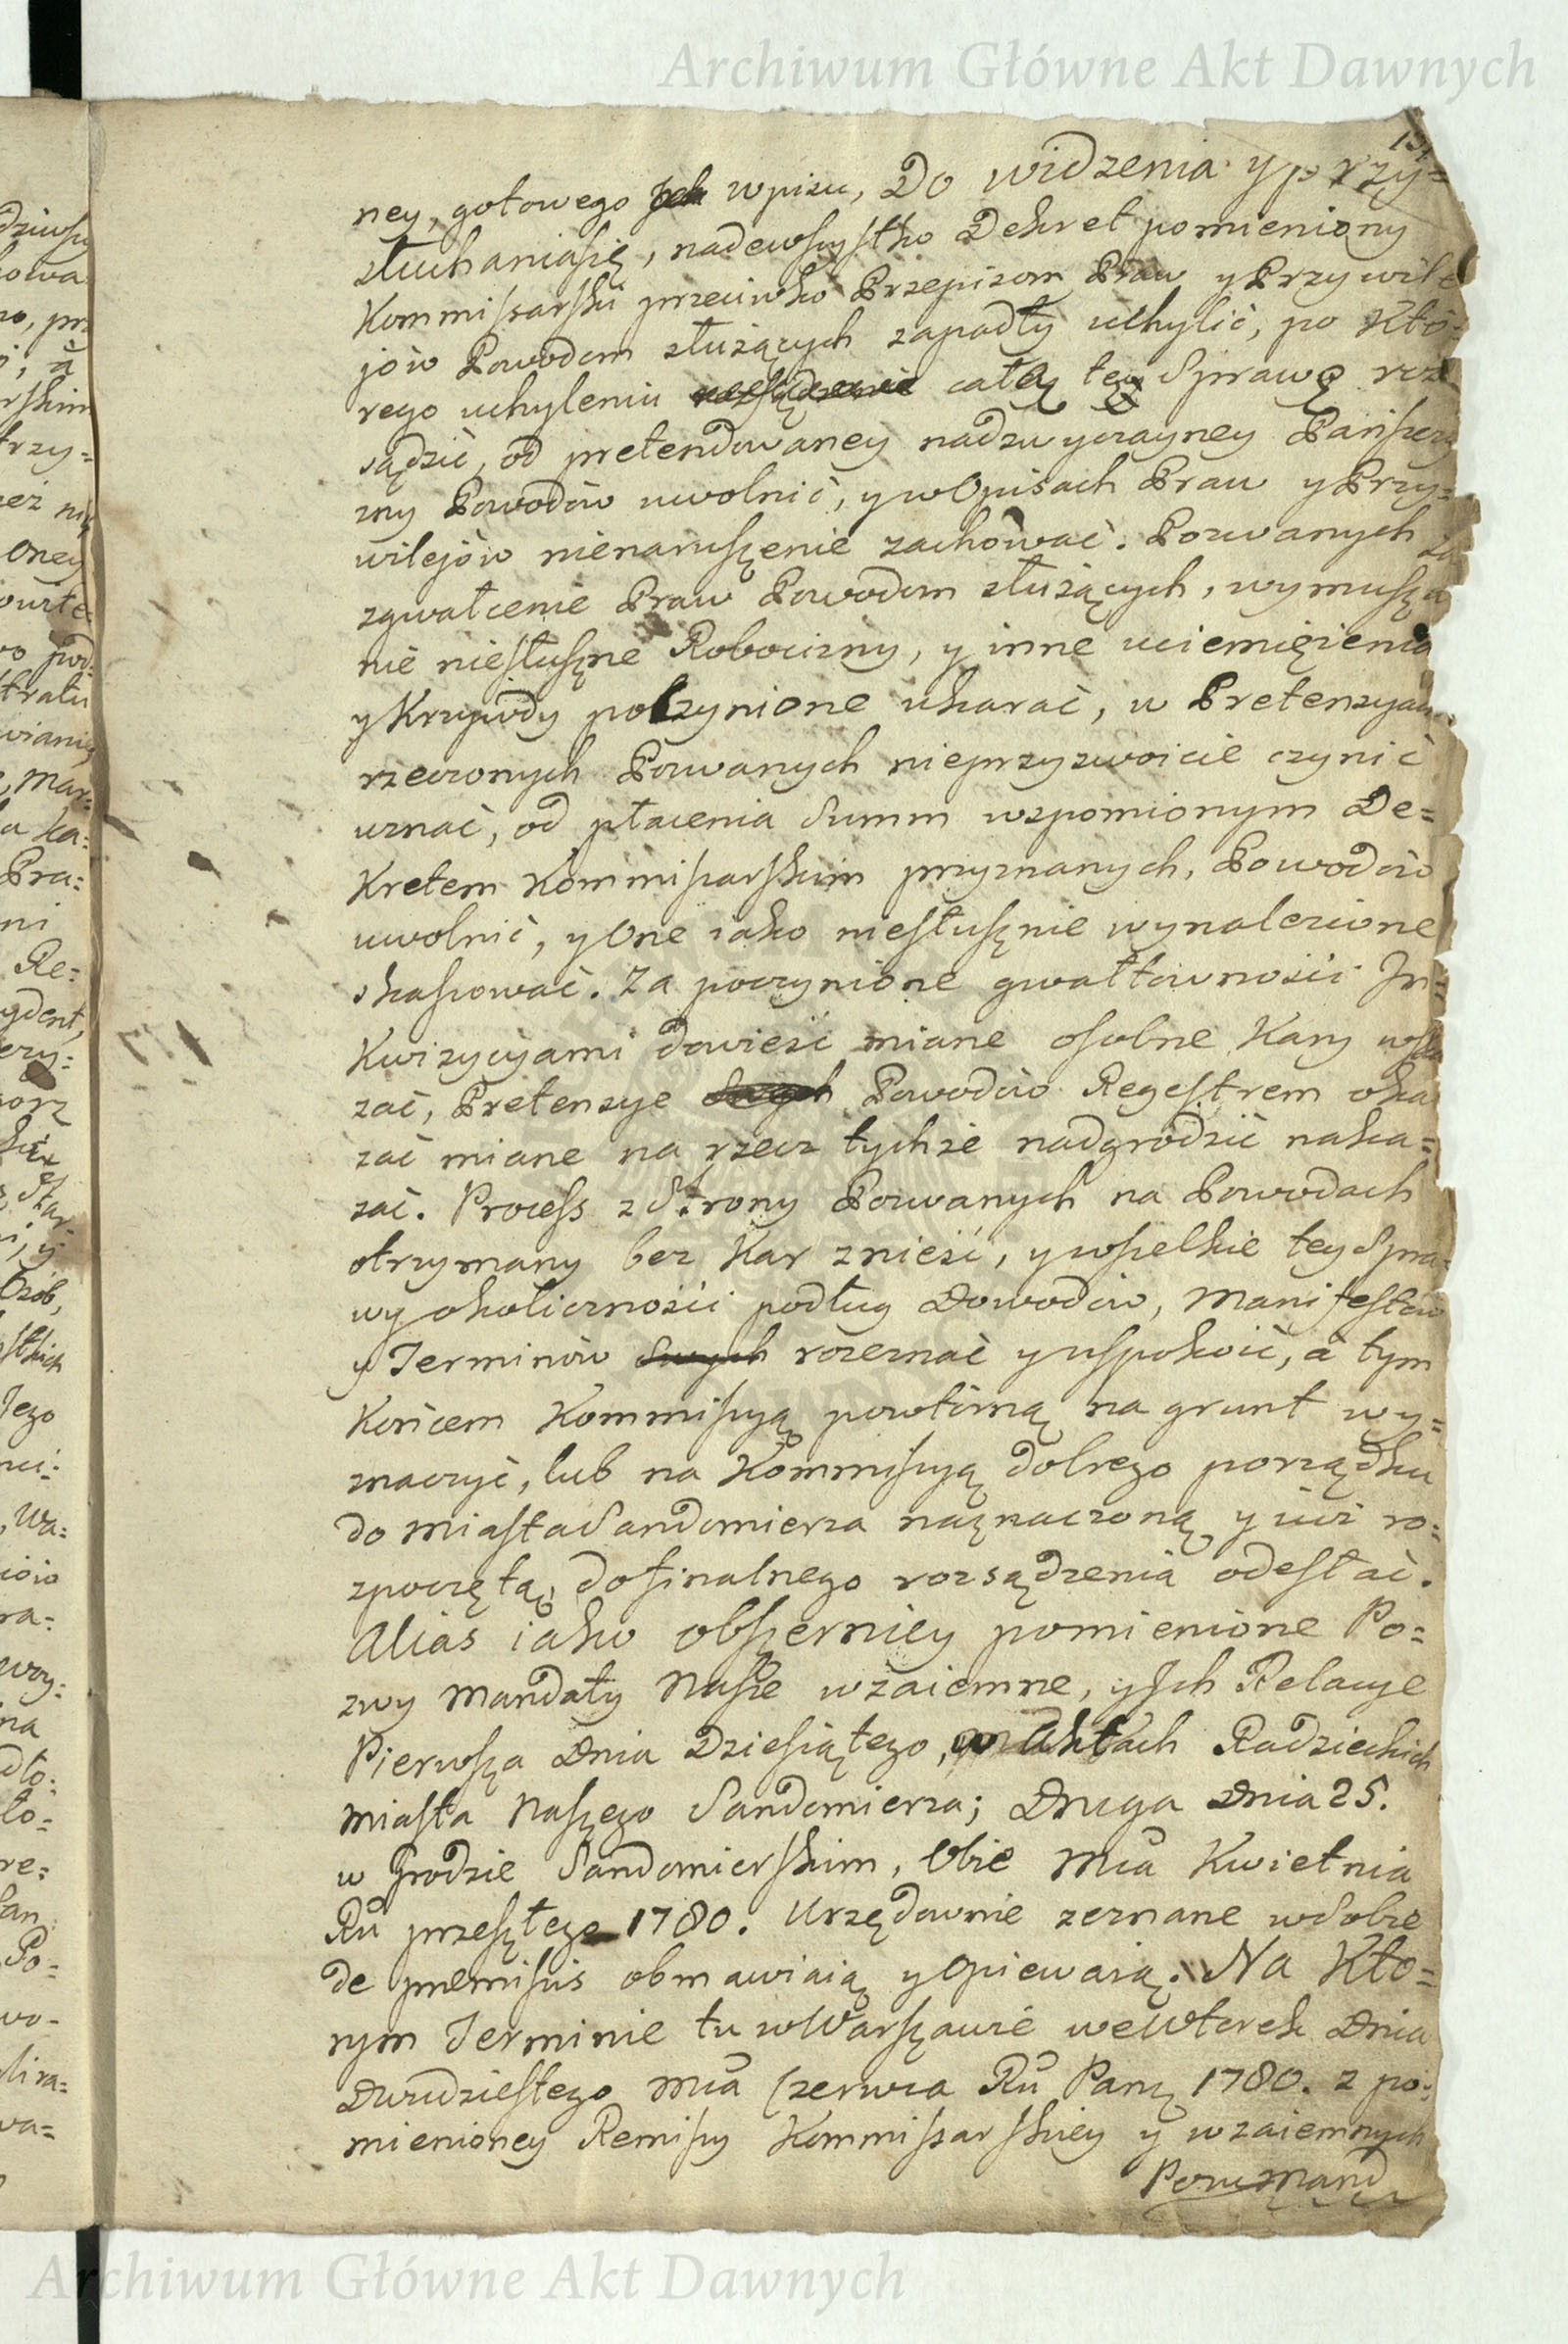 Archiwum Główne Akt Dawnych
ney, gotowego wpisu, Do widzenia y przy=
słuchaniasię, nadewszystko Dekret pomieniony
Kommissarski przeciwko Przepisom Praw y Przywile
jów Powodom służących zapadły uchylić, po Któ=
rego uchyleniu całą tey Sprawę roz
sądzić, od pretendowaney nadzwyczayney Pańszczy
zny Powodów uwolnić, y w Opisach Praw y Przy=
wilejów nienaruszenie zachować. Pozwanych za
zgwałcenie Praw Powodom służących, wymusza
nie niesłuszne Robocizny, y inne uciemiężenia
y Krzywdy poczynione ukarać, w Pretensyach
rzeczonych Pozwanych nieprzyzwoicie czynić
uznać, od płacenia Summ wzpomionym De=
Kretem Kommissarskim przyznanych, Powodów
uwolnić, y One iako niesłusznie wynalezione
skassować. Za poczynione gwałtowności In=
Kwizycyami dowieść miane osobne Kary wska
zać, Pretensye Powodów Regestrem oka
zać miane na rzecz tychże nadgrodzić naka=
zać. Process z Strony Pozwanych na Powodach
otrzymany bez Kar znieść, y wszelkie tey Spra=
wy okoliczności podług Dowodów, Manifestów
y Terminów rozeznać y uspokoić, a tym
Końcem Kommissyą powtórną na grunt wy=
znaczyć, lub na Kommissyą dobrego porządku
do Miasta Sandomierza naznaczoną y iuż ro=
zpoczętą, do finalnego rozsądzenia odesłać.
Alias iako obszerniey pomienione Po=
zwy Mandaty Nasze wzaiemne, y Ich Relacye
Pierwsza Dnia Dziesiątego, w Aktach Radzieckich
Miasta Naszego Sandomierza; Druga Dnia 25.
w Grodzie Sandomierskim, Obie Mca Kwietnia
Ru przeszłego 1780. Urzędownie zeznane w Sobie
de premissis obmawiaią y Opiewaią. Na Kto=
rym Terminie tu w Warszawie we Wtorek Dnia
Dwudziestego Mca Czerwca Ru Pans 1780. z po=
mienioney Remissy Kommissarskiey y wzaiemnych
Archiwum Główne Akt Dawnych